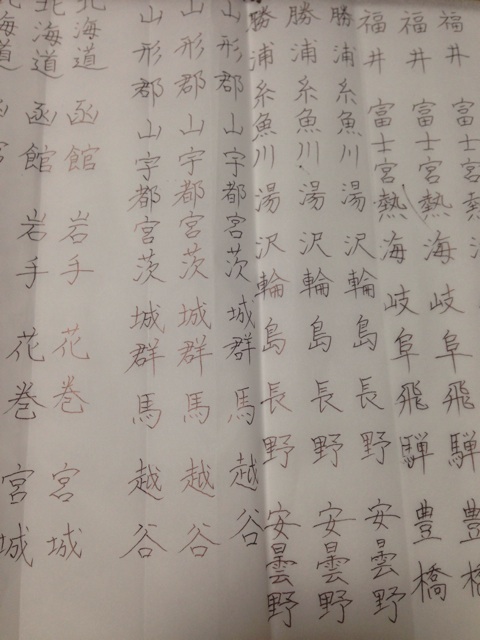 福井 富士宮
福井 富士宮熱海岐阜飛騨豊
福井 富士宮熱海岐阜飛騨豊橋
勝浦糸魚川湯沢輪島長野 安曇野
勝浦糸魚川湯沢輪島長野 安曇野
勝浦糸魚川湯沢輪島長野 安曇野
山形郡山宇都宮茨城群馬越谷
山形郡山宇都宮茨城群馬越谷
山形郡山宇都宮茨城群馬越谷
北海道 函館 岩手 花巻 宮城
北海道 函館 岩手 花巻 宮城
海道